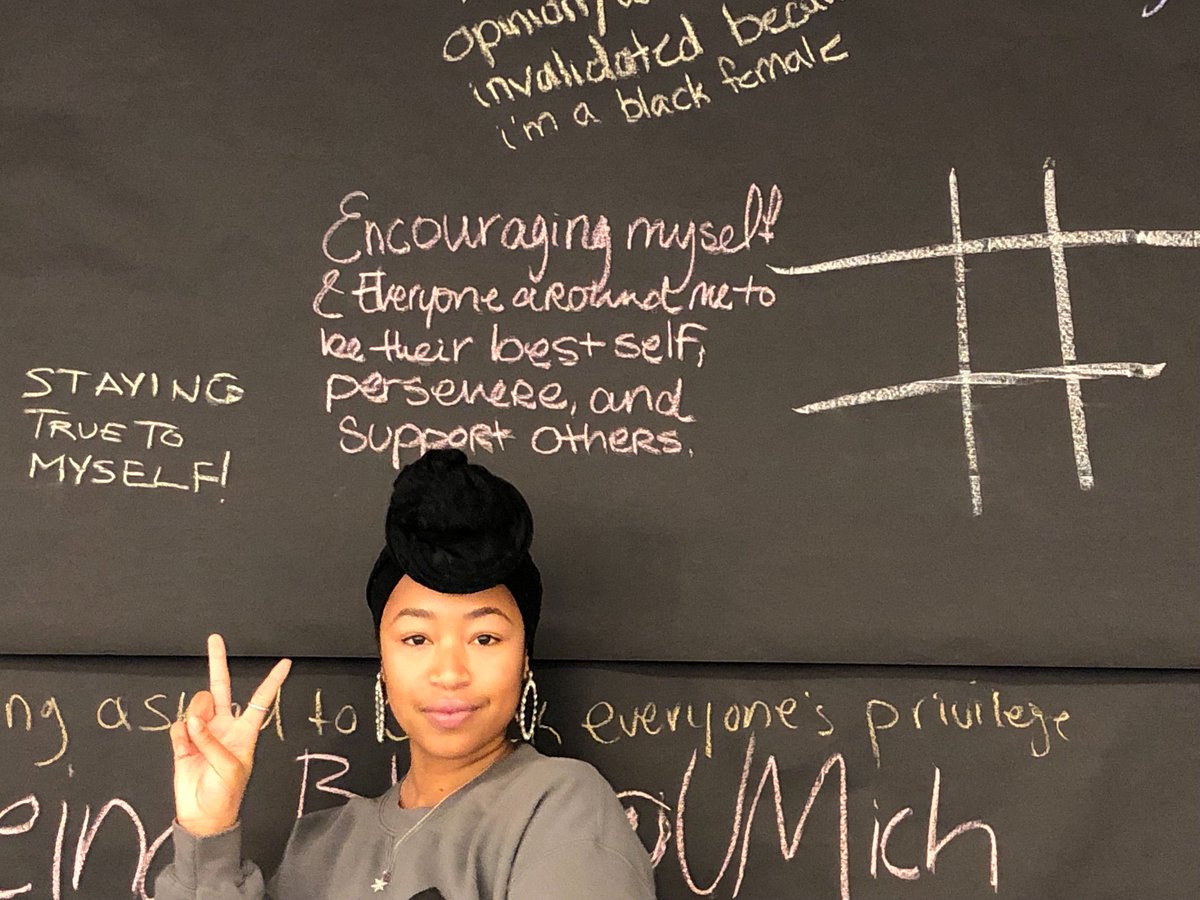 invalidated
i'm a black female
Encouraging myself
& Everyone around me to
be their best self,
persevere, and
support others.
STAYING
TRUE TO
MYSELF!
to everyone's privilege
@UMich